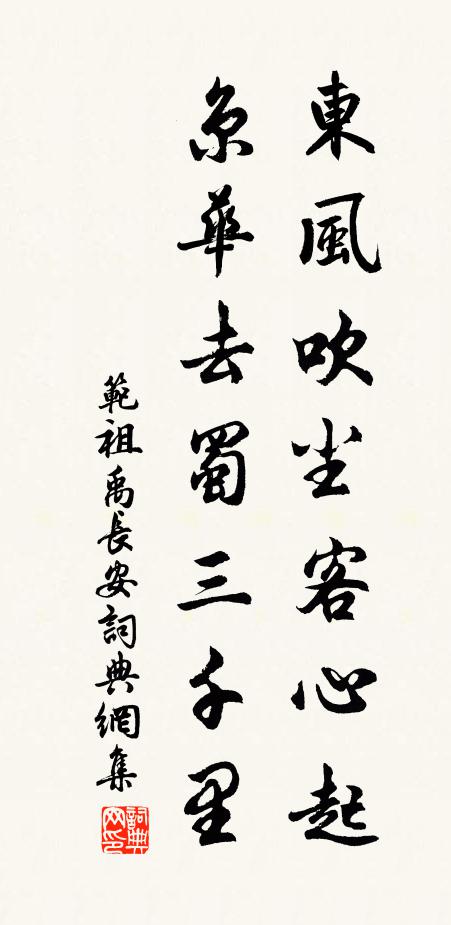 東風吹坐客心起
京華去蜀三千里
範祖禹長安詞典網集
詞典
网印